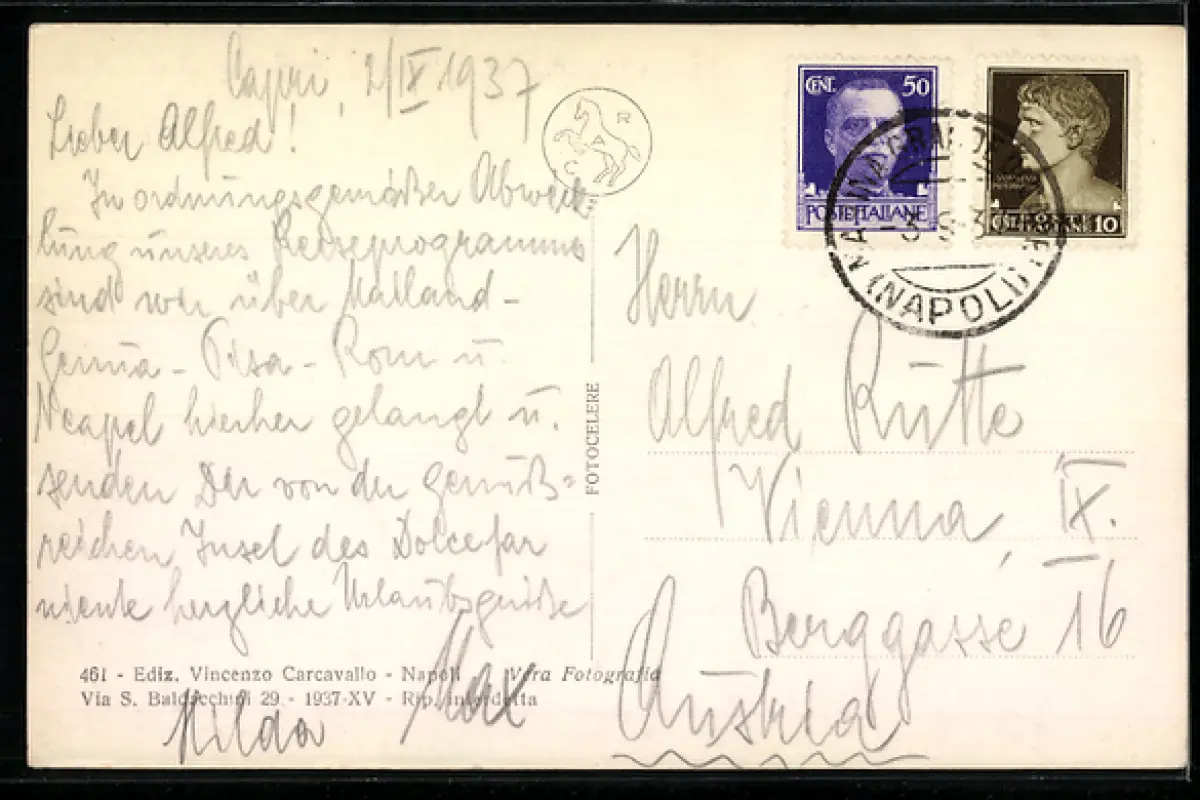 Capri, 2/IX 1937
Lieber Alfred!
In ordnungsgemäßer Abwick
lung unseres Reiseprogramms
sind wir über Mailand -
Genua - Pisa - Rom u.
Neapel hierher gelangt u.
senden Dir von der genuß=
reichen Insel des Dolcefar
niente herzliche Urlaubsgrüße
Max
Hilda
461 - Ediz. Vincenzo Carcavallo - Napoli Vera Fotografia
Via S. Baldacchini 29 - 1937-XV - Rip. interdetta
C A R
FOTOCELERE
CENT. 50
POSTE ITALIANE
10
MARINA GRANDE
(NAPOLI)
Herrn
Alfred Rütte
Vienna, IX.
Berggasse 16
Austria